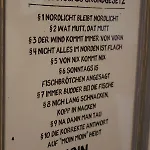 GRUNDGESETZ
§ 1 NORDLICHT BLEIBT NORDLICHT
§ 2 WAT MUTT, DAT MUTT
§ 3 DER WIND KOMMT IMMER VON VORN
§ 4 NICHT ALLES IM NORDEN IST FLACH
§ 5 VON NIX KOMMT NIX
§ 6 SONNTAGS IS
FISCHBRÖTCHEN ANGESAGT
§ 7 IMMER BUDDER BEI DIE FISCHE
§ 8 NICH LANG SCHNACKEN,
KOPP IN NACKEN
§ 9 NA DANN MAN TAU
§ 10 DIE KORREKTE ANTWORT
AUF "MOIN MOIN" HEIßT
MOIN